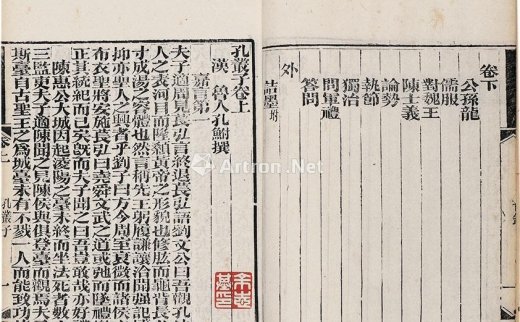 卷下
公孫龍
儒服
對魏王
陳士義
論勢
執節
獨治
問軍禮
答問
外
詰墨附
孔叢子卷上
漢 魯人孔鮒撰
嘉言第一
夫子適周見萇弘言終退萇弘語劉文公曰吾觀孔
人之表河目而隆顙黃帝之形也修肱而龜背長
寸成湯之容體也然言稱先王躬履謙讓洽聞强記
抑亦聖人之興者乎劉子曰方今周室衰微而諸侯
布衣聖將安施萇弘曰堯舜文武之道或弛而墜禮
正其統紀而已矣既而夫子聞之曰吾豈敢哉亦好
陳惠公大城因起凌陽之臺未終而坐法死者數
三監吏夫子適陳聞之見陳侯與俱登臺而觀焉夫
斯臺自古聖王之為城臺未有不戮一人而能致功
孔叢子
Artron.Net